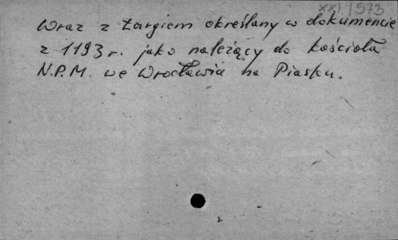 XXI/573
Wraz z targiem określany w dokumencie
z 1193 r. jako należący do kościoła
N.P.M. we Wrocławia na Piasku.